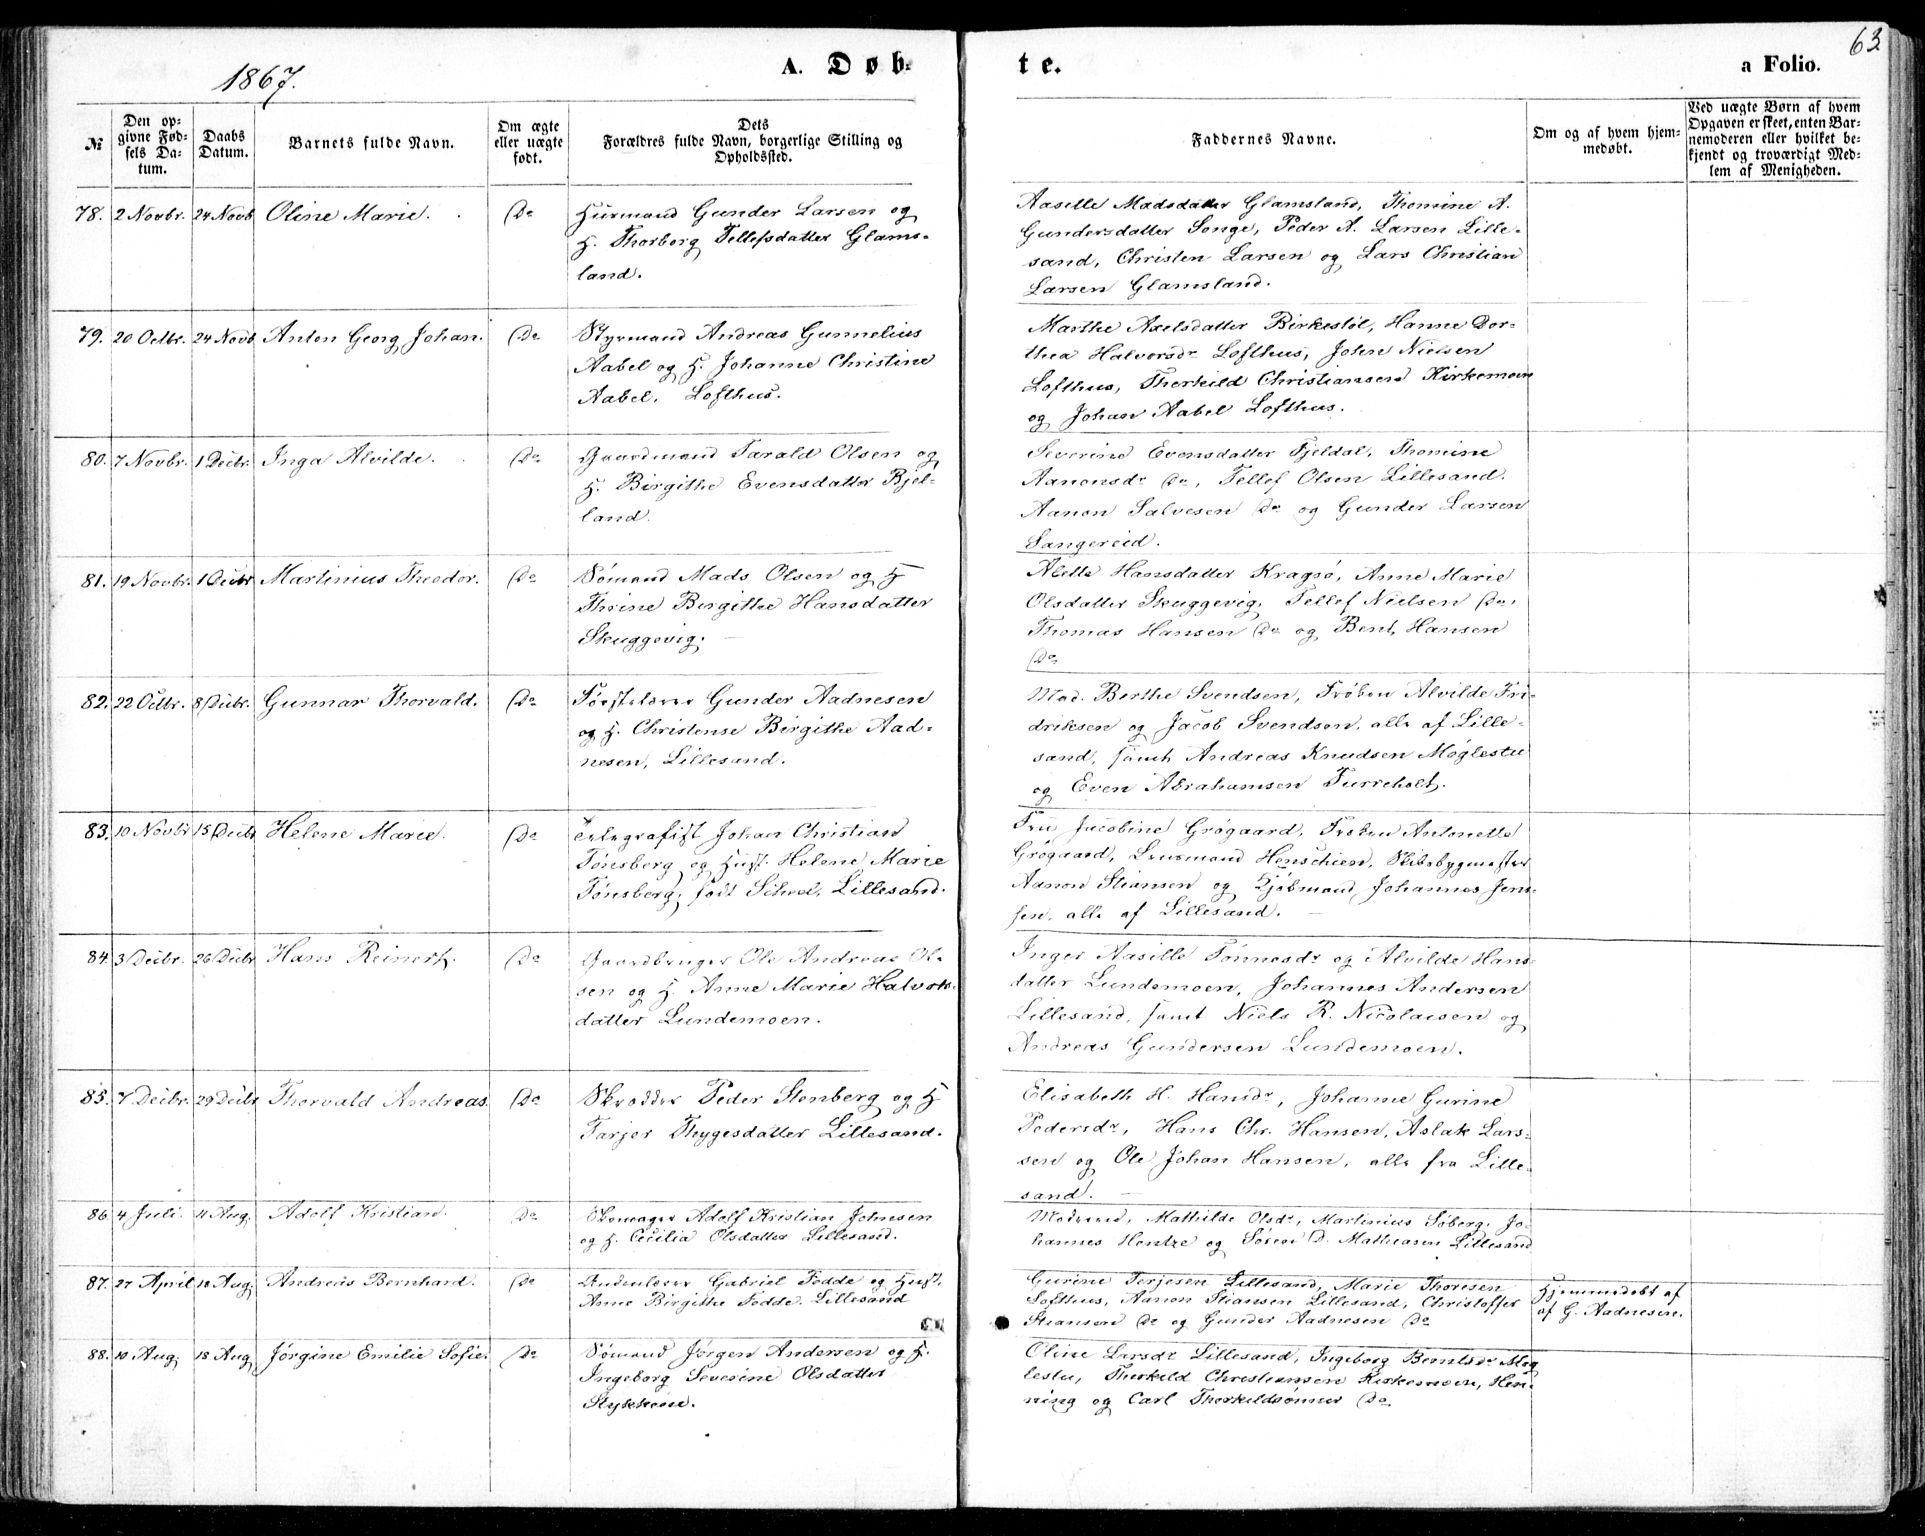 63
1867.
A. Døb-
te.
a Folio.
№
Den op-
givne Fød-
sels Da-
tum.
Daabs
Datum.
Barnets fulde Navn.
Om ægte
eller uægte
født.
Dets
Forældres fulde Navn, borgerlige Stilling og
Opholdssted.
Faddernes Navne.
Om og af hvem hjem-
medøbt.
Ved uægte Børn af hvem
Opgaven er skeet, enten Bar-
nemoderen eller hvilket be-
kjendt og troværdigt Med-
lem af Menigheden.
78. 2 Novbr. 24 Novb Oline Marie. Do
Huusmand Gunder Larsen og
H. Thorborg Tellefsdatter Glams-
land.
Aasille Madsdatter Glamsland, Thomine A.
Gundersdatter Songe, Peder A. Larsen Lille-
sand, Christen Larsen og Lars Christian
Larsen Glamsland.
79. 20 Octbr. 24 Novb Anton Georg Johan. Do
Styrmand Andreas Gunnelius
Aabel og H. Johanne Christine
Aabel, Lofthus.
Marthe Axelsdatter Birkestøl, Hanne Dor-
thea Halvorsdr Lofthus, John Nielsen
Lofthus, Therkild Christiansen Kirkemoen
og Johan Aabel Lofthus.
80. 7 Novbr. 1 Decbr. Inga Alvilde. Do
Gaardmand Tarald Olsen og
H. Birgithe Evensdatter Bjel-
land.
Severine Evensdatter Fjeldal, Thomine
Aanonsdr Do, Tellef Olsen Lillesand.
Aanon Salvesen Do og Gunder Larsen
Sangereid.
81. 19 Novbr. 1 Decbr Martinius Theodor. Do
Sømand Mads Olsen og H
Thrine Birgithe Hansdatter
Skuggevig.
Alette Hansdatter Kragsø, Anne Marie
Olsdatter Skuggevig, Tellef Nielsen Do,
Thomas Hansen Do og Bent Hansen
Do
82. 22 Octbr. 8 Decbr. Gunnar Thorvald. Do
Førstelærer Gunder Aadnesen
og H. Christense Birgithe Aad-
nesen, Lillesand.
Mad. Berthe Svendsen, Frøken Alvilde Fri-
driksen og Jacob Svendsen, alle af Lille-
sand, samt Andreas Knudsen Møglestu
og Even Abrahamsen Furreholt.
83. 10 Novbr 15 Decbr Helene Marie. Do
Telegrafist Johan Christian
Tønsberg og Hust. Helene Marie
Tønsberg, født Scheel, Lillesand.
Fru Jacobine Grøgaard, Frøken Antonette
Grøgaard, Lensmand Henschien, Skibsbygmester
Aanon Stiansen og Kjøbmand Johannes Jens-
sen, alle af Lillesand.
84. 3 Decbr. 26 Decbr Hans Reinert. Do
Gaardbruger Ole Andreas Ol-
sen og H Anne Marie Halvors-
datter Lundemoen.
Inger Aasille Tønnesdr og Alvilde Hans-
datter Lundemoen, Johannes Andersen
Lillesand, samt Niels R. Nicolaisen og
Andreas Gundersen Lundemoen.
85. 7 Decbr. 29 Decbr Thorvald Andreas. Do
Skrædder Peder Stenberg og H
Tarjer Thygesdatter Lillesand.
Elisabeth H. Hansdr, Johanne Gurine
Pedersdr, Hans Chr. Hansen, Aslak Lars-
sen og Ole Johan Hansen, alle fra Lille-
sand.
86 4 Juli. 11 Aug. Adolf Kristian. Do
Skomager Adolf Kristian Johnesen
og H. Cecilia Olsdatter Lillesand.
Moderen, Mathilde Olsdr, Martinius Søberg, Jo-
hannes Hentze og Søren D. Mathiasen Lillesand
87. 27 April 18 Aug. Andreas Bernhard. Do
Andenlærer Gabriel Fedde og Hust.
Anne Birgithe Fedde. Lillesand
Gurine Terjesen Lillesand, Marie Thoresen
Lofthus, Aanon Stiansen Lillesand, Christoffer
Stiansen Do og Gunder Aadnesen Do
Hjemmedøbt af
af G. Aadnesen.
88. 10 Aug. 18 Aug Jørgine Emilie Sofie. Do
Sømand Jørgen Andersen og H.
Ingeborg Severine Olsdatter
Stykkene.
Oline Larsdr Lillesand, Ingeborg Berntsdr Møg
lestu, Therkild Christiansen Kirkemoen, Hen-
ning og Carl Therkildsønner Do